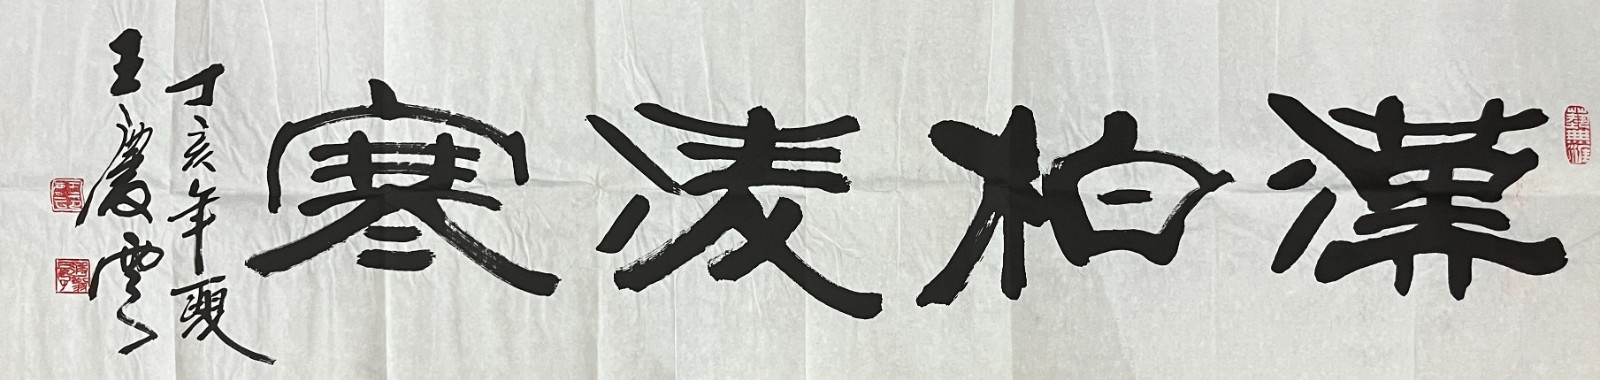 漢柏凌寒
丁亥年夏
王慶雲